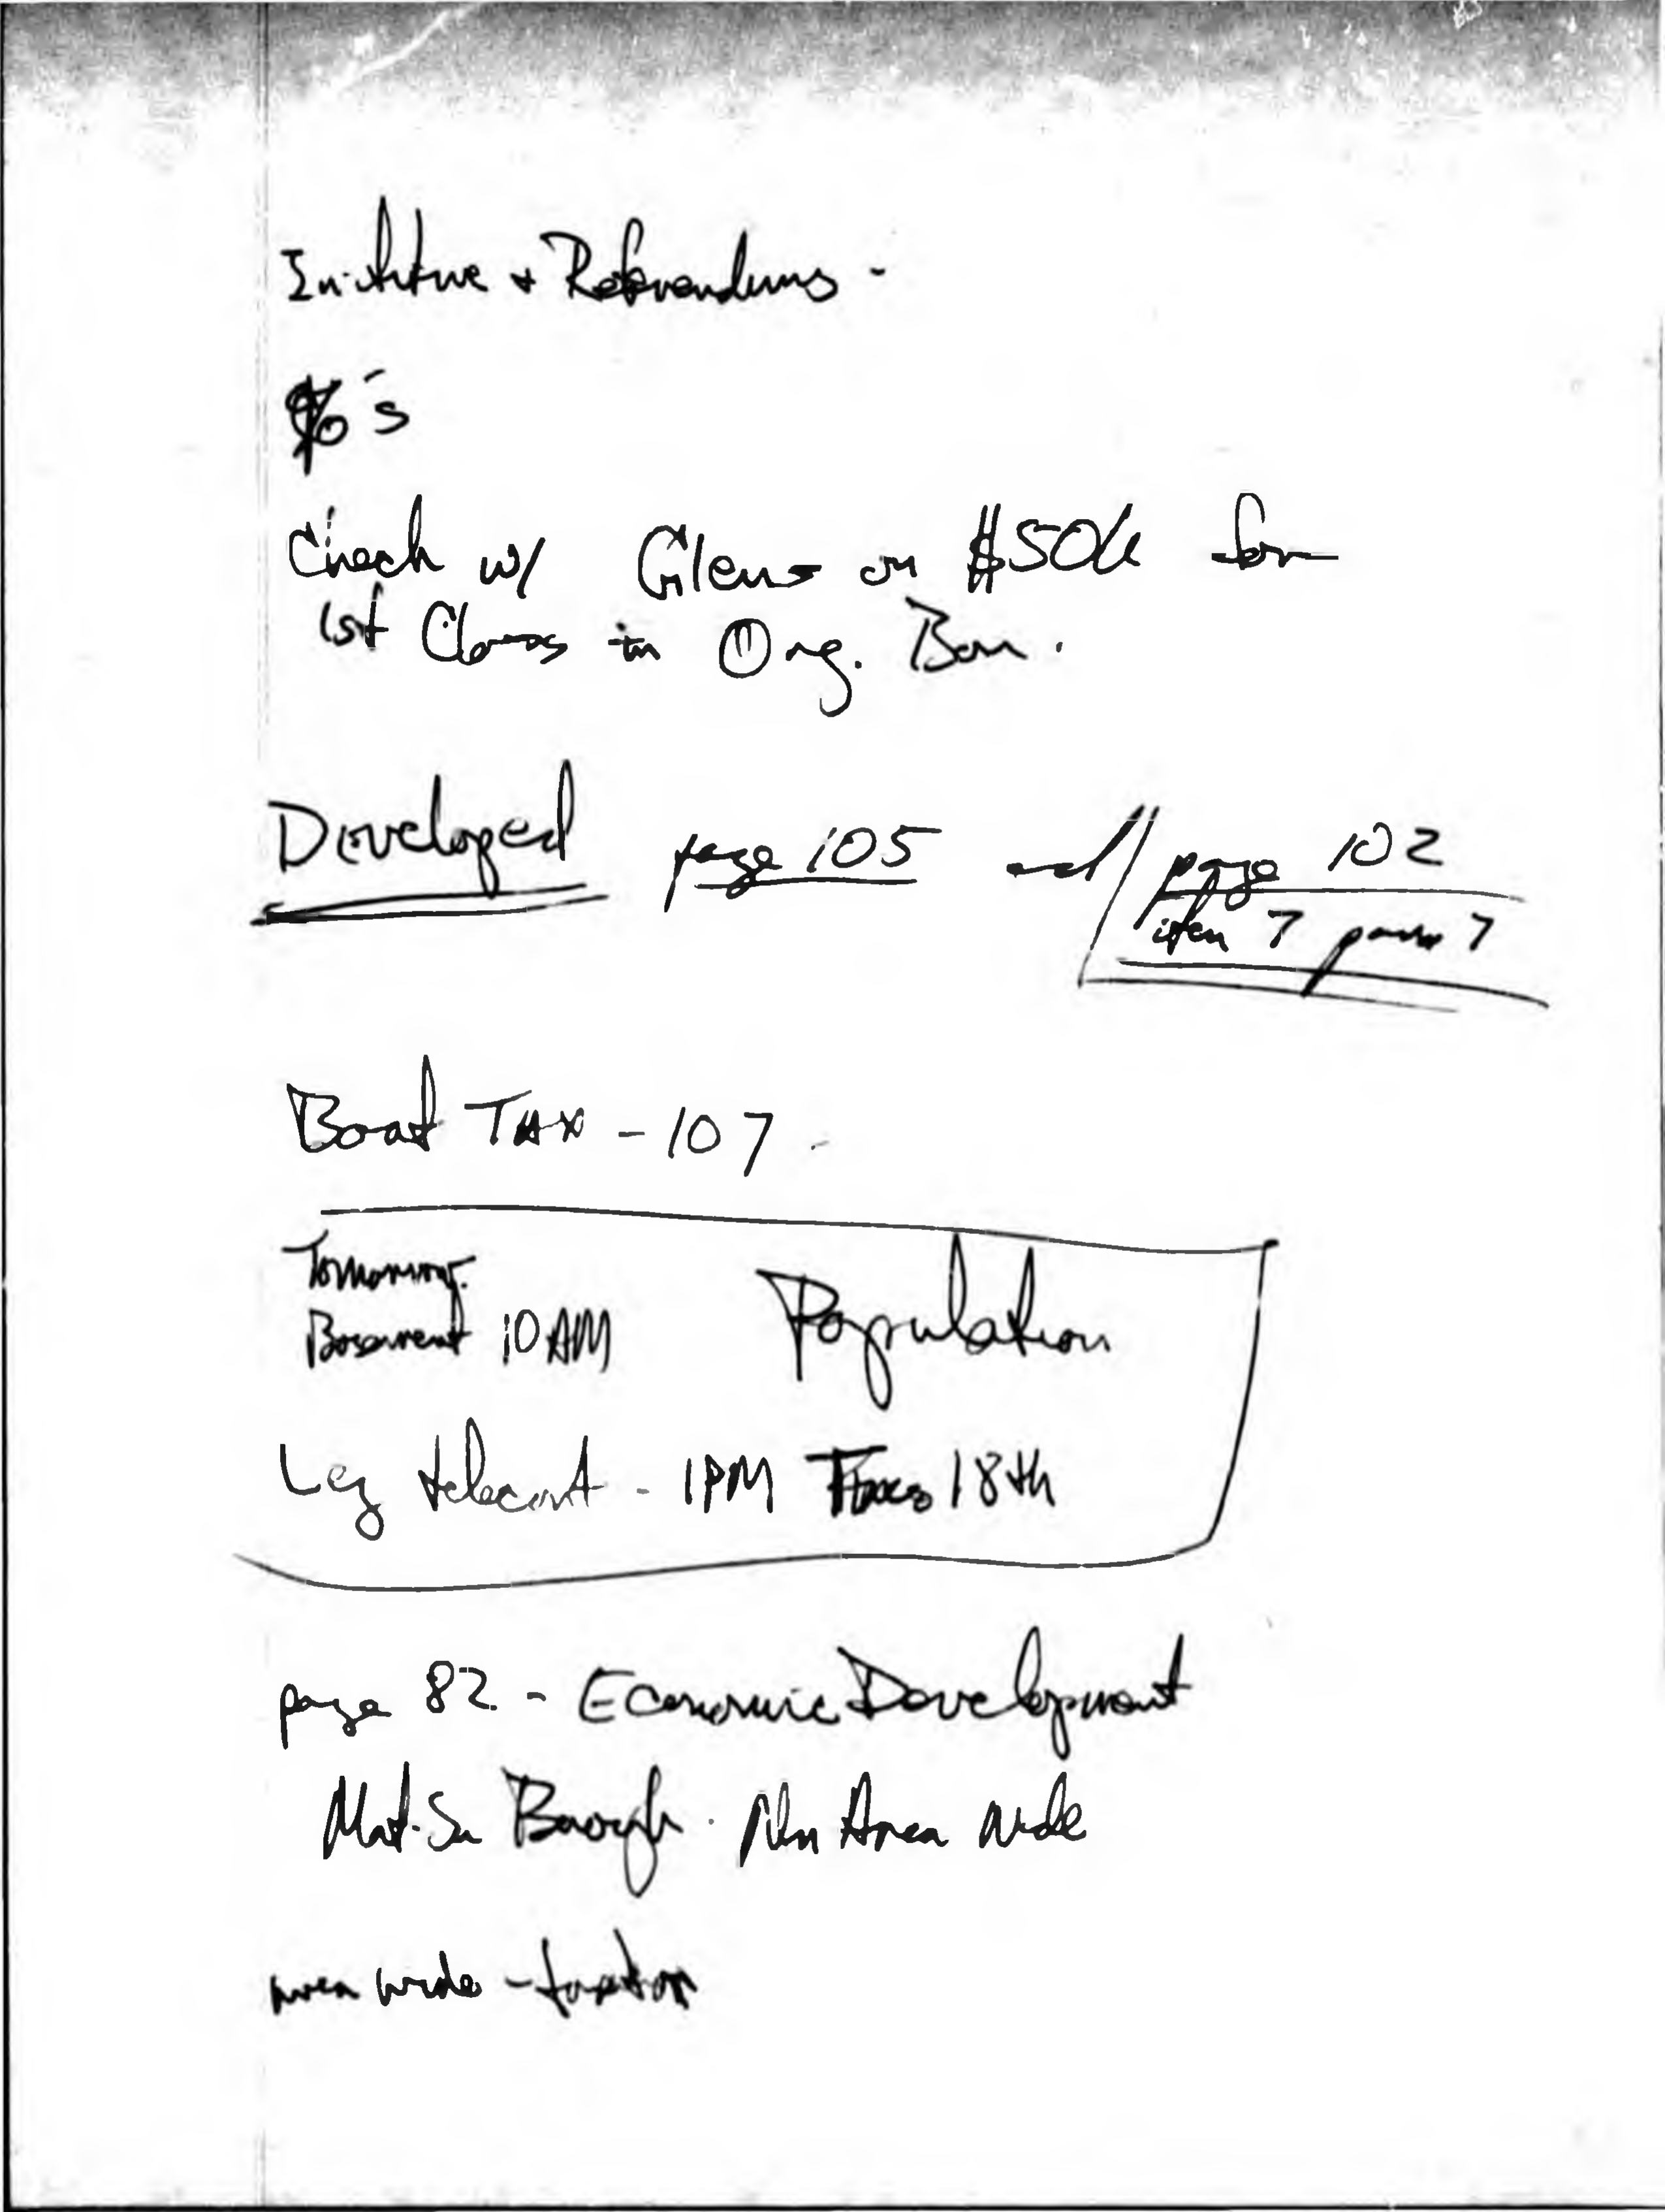 Initiative + Referendums -
%'s
Check w/ Glenn on $50k for
1st Class in Org. Bor.
Developed page 105 and page 102
item 7 power 7
Boat TAX - 107 -
Tomorrow
Basement 10 AM Population
Leg teleconf - 1PM 18th
page 82 - Economic Development
Mat-Su Borough - Non Area wide
area wide - taxation